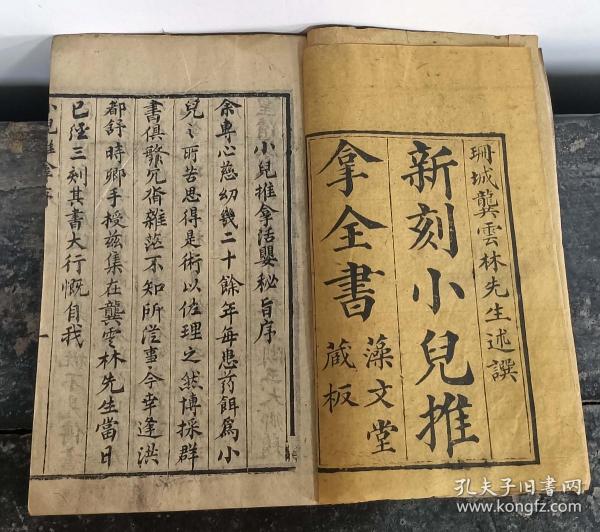 珊城龔雲林先生述譔
新刻小兒推
拿全書
藻文堂
蔵板
小兒推拿活嬰秘旨序
余專心慈幼幾二十餘年每患药餌為小
兒之所苦思得是術以佐理之然博採群
書俱繁冗淆雜茫不知所従事今幸逢洪
都舒時卿手授玆集在龔雲林先生當日
已經三刻其書大行慨自我
孔夫子旧书网
www.kongfz.com